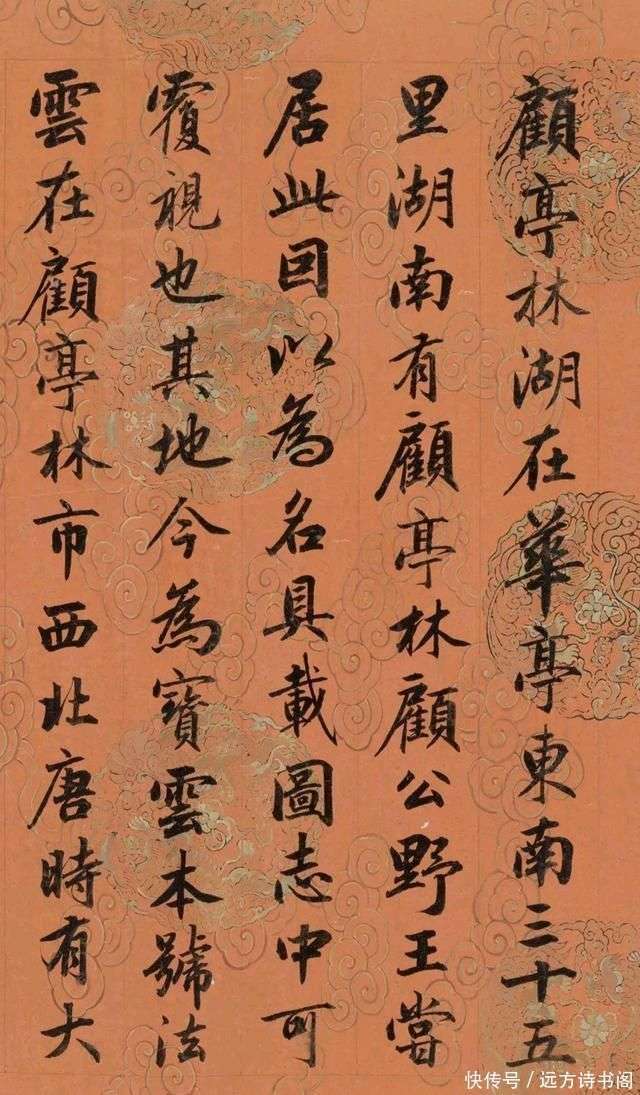 顧亭林湖在華亭東南三十五
里湖南有顧亭林顧公野王嘗
居此因以為名具載圖志中可
覆視也其地今為寶雲本號法
雲在顧亭林市西北唐時有大
快传号／远方诗书阁